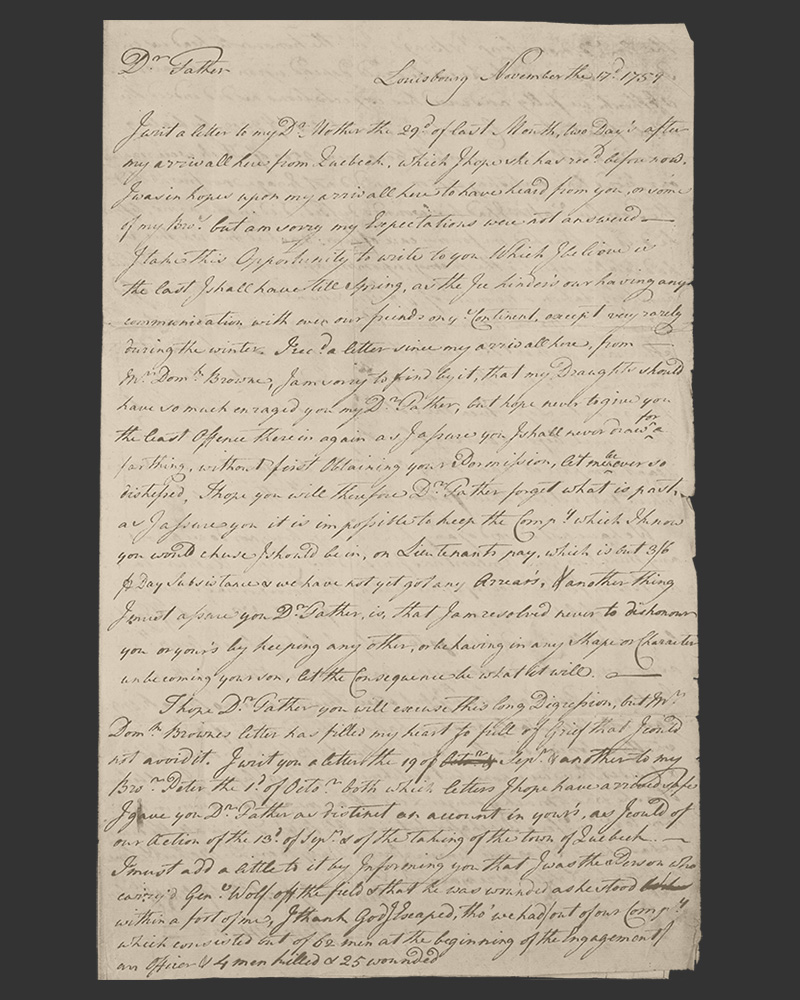 Dr. Father
Louisbourg November the 17d. 1759
I writ a letter to my Dr. Mother the 29d. of last Month, two Day's after
my arrivall here from Quebeck, which I hope she has recd. before now.
I was in hopes upon my arrivall here to have heard from you, or some
of my Bros. but am sorry my Expectations were not answered —
I take this Opportunity to write to you Which I believe is
the last I shall have till Spring, as the Ice hinders our having any
communication with even our friends on ye. Continent, except very rarely
during the winter. I recd. a letter since my arrivall here, from —
Mr. Domk. Browne, I am sorry to find by it, that my Draughts should
have so much enraged you my Dr. Father, but hope never to give you
the least Offence therein again as I assure you I shall never draw for a
farthing, without first Obtaining your Permission, let me be never so
distress'd, I hope you will therefore Dr. Father forget what is past,
as I assure you it is impossible to keep the Compy. which I know
you would chuse I should be in, on Lieutenants pay, which is but 3/6
℔ Day Subsistance & we have not yet got any Arrears, & another thing
I must assure you Dr. Father, is, that I am resolved never to dishonour
you or your's by keeping any other, or behaving in any Shape or Character
unbecoming your son, let the Consequence be what it will. —
I hope Dr. Father you will excuse this long Digression, but Mr.
Domk. Brownes letter has filled my heart so full of Grief that I could
not avoid it. I writ you a letter the 19 of Sepr. & another to my
Bror. Peter the 1d. of Octor. both which letters I hope have arrived safe
I gave you Dr. Father as distinct an account in your's, as I could of
our Action of the 13d. of Sepr. & of the taking of the town of Quebeck. —
I must add a little to it by Informing you that I was the Person who
carry'd Genl. Wolf off the field & that he was wounded as he stood
within a foot of me, I thank God I Escaped, tho' we had out of our Compy.
which consisted but of 62 men at the beginning of the Engagement
an Officer & 4 men killed & 25 wounded